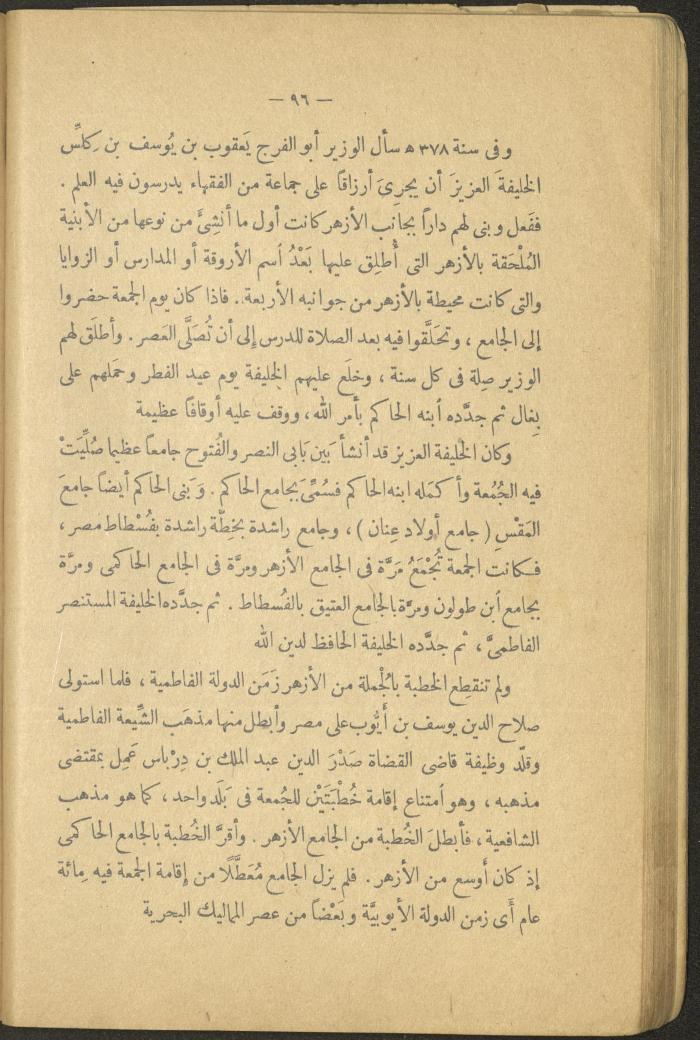 — ٩٦ —
وفى سنة ٣٧٨ ه سأل الوزير أبو الفرج يَعقوب بن يُوسف بن كِلِّس
الخليفةَ العزيزَ أن يجرِىَ أرزاقًا على جماعة من الفقهاء يدرسون فيه العلم .
ففَعل وبنى لهم داراً بجانب الأزهر كانت أول ما أنشِئَ من نوعها من الأبنية
المُلْحَقة بالأزهر التى أُطلِق عليها بَعْدُ اسم الأروقة أو المدارس أو الزوايا
والتى كانت محيطة بالأزهر من جوانبه الأربعة . فاذا كان يوم الجمعة حضروا
إلى الجامع ، وتحَلَّقوا فيه بعد الصلاة للدرس إلى أن تُصَلَّى العَصر . وأطلَق لهم
الوزير صِلة فى كل سنة ، وخلَع عليهم الخليفة يوم عيد الفطر وحمَلهم على
بِغال ثم جدَّده ابنه الحاكم بأمر الله ، ووقف عليه أوقافًا عظيمة
وكان الخليفة العزيز قد أنشأ بَين بَابى النصر والفُتوح جامعاً عظيما صُلِّيَتْ
فيه الجُمُعة وأكمَله ابنه الحاكم فسُمِّىَ بجامع الحاكم . وَبَنى الحاكم أيضاً جامعَ
المَقْسِ ( جامع أولاد عِنان ) ، وجامع راشدة بخِطّة راشدة بفُسْطاط مصر ،
فكانت الجمعة تُجْمَعُ مَرَّة فى الجامع الأزهر ومرَّة فى الجامع الحاكمى ومرَّة
بجامع ابن طولون ومرَّة بالجامع العتيق بالفُسطاط . ثم جدَّده الخليفة المستنصر
الفاطمىُّ ، ثم جدَّده الخليفة الحافظ لدين الله
ولم تنقطِع الخطبة بالجُملة من الأزهر زَمَن الدولة الفاطمية ، فلما استولى
صلاح الدين يوسف بن أيُّوب على مصر وأبطل منها مذهَب الشِّيعة الفاطمية
وقلَّد وظيفة قاضى القضاة صَدْرَ الدين عبد الملك بن دِرْباس عَمِل بمقتضى
مذهبه ، وهو امتناع إقامة خُطْبَتَيْن للجُمعة فى بَلَد واحد ، كما هو مذهب
الشافعية ، فأبطلَ الخُطبة من الجامع الأزهر . وأقرَّ الخُطبة بالجامع الحاكمى
إذ كان أوسع من الأزهر . فلم يزل الجامع مُعَطَّلًا من إقامة الجمعة فيه مِائة
عام أَى زمن الدولة الأيوبيَّة وبَعْضًا من عصر المماليك البحرية